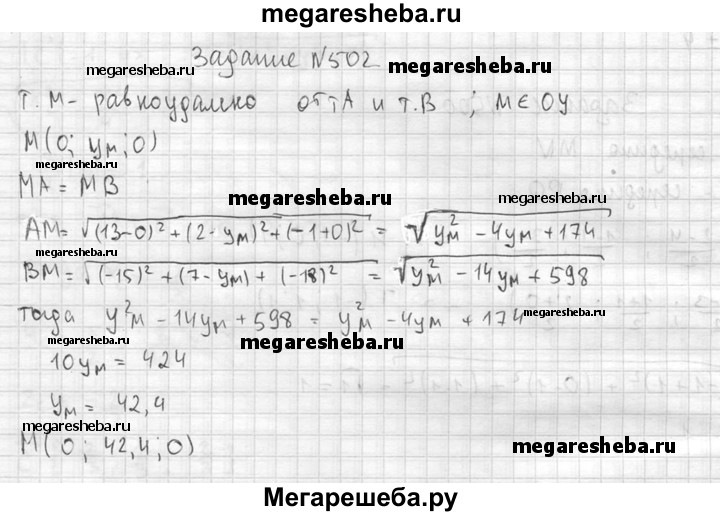 megaresheba.ru
Задание №502
megaresheba.ru megaresheba.ru
т. М - равноудалено от т А и т. В ; М ∈ ОУ
М(0; yм; 0)
megaresheba.ru
МА = МВ
megaresheba.ru megaresheba.ru
АМ = √(13-0)² + (2-yм)² + (-1+0)² = √yм² - 4yм + 174
megaresheba.ru
ВМ = √(-15)² + (7-yм) + (-18)² = √yм² - 14yм + 598
тогда y²м - 14yм + 598 = y²м - 4yм + 174
megaresheba.ru
megaresheba.ru
10yм = 424
yм = 42,4
megaresheba.ru
М(0; 42,4; 0)
megaresheba.ru
Мегарешеба.ру